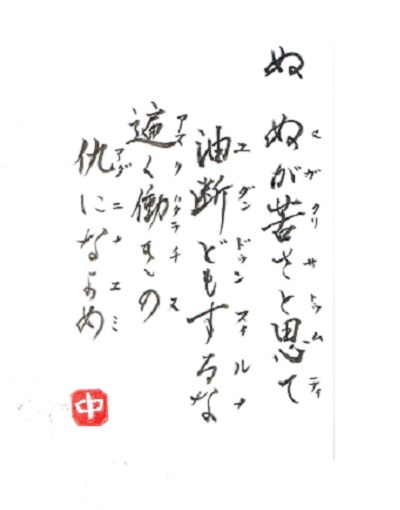 ぬ
ぬが苦さと思て
ヌガクリサトゥムティ
油断どもするな
ユダンドゥンスィルナ
遍く働きの
アマクハタラチヌ
仇になよめ
アダニナユミ
中